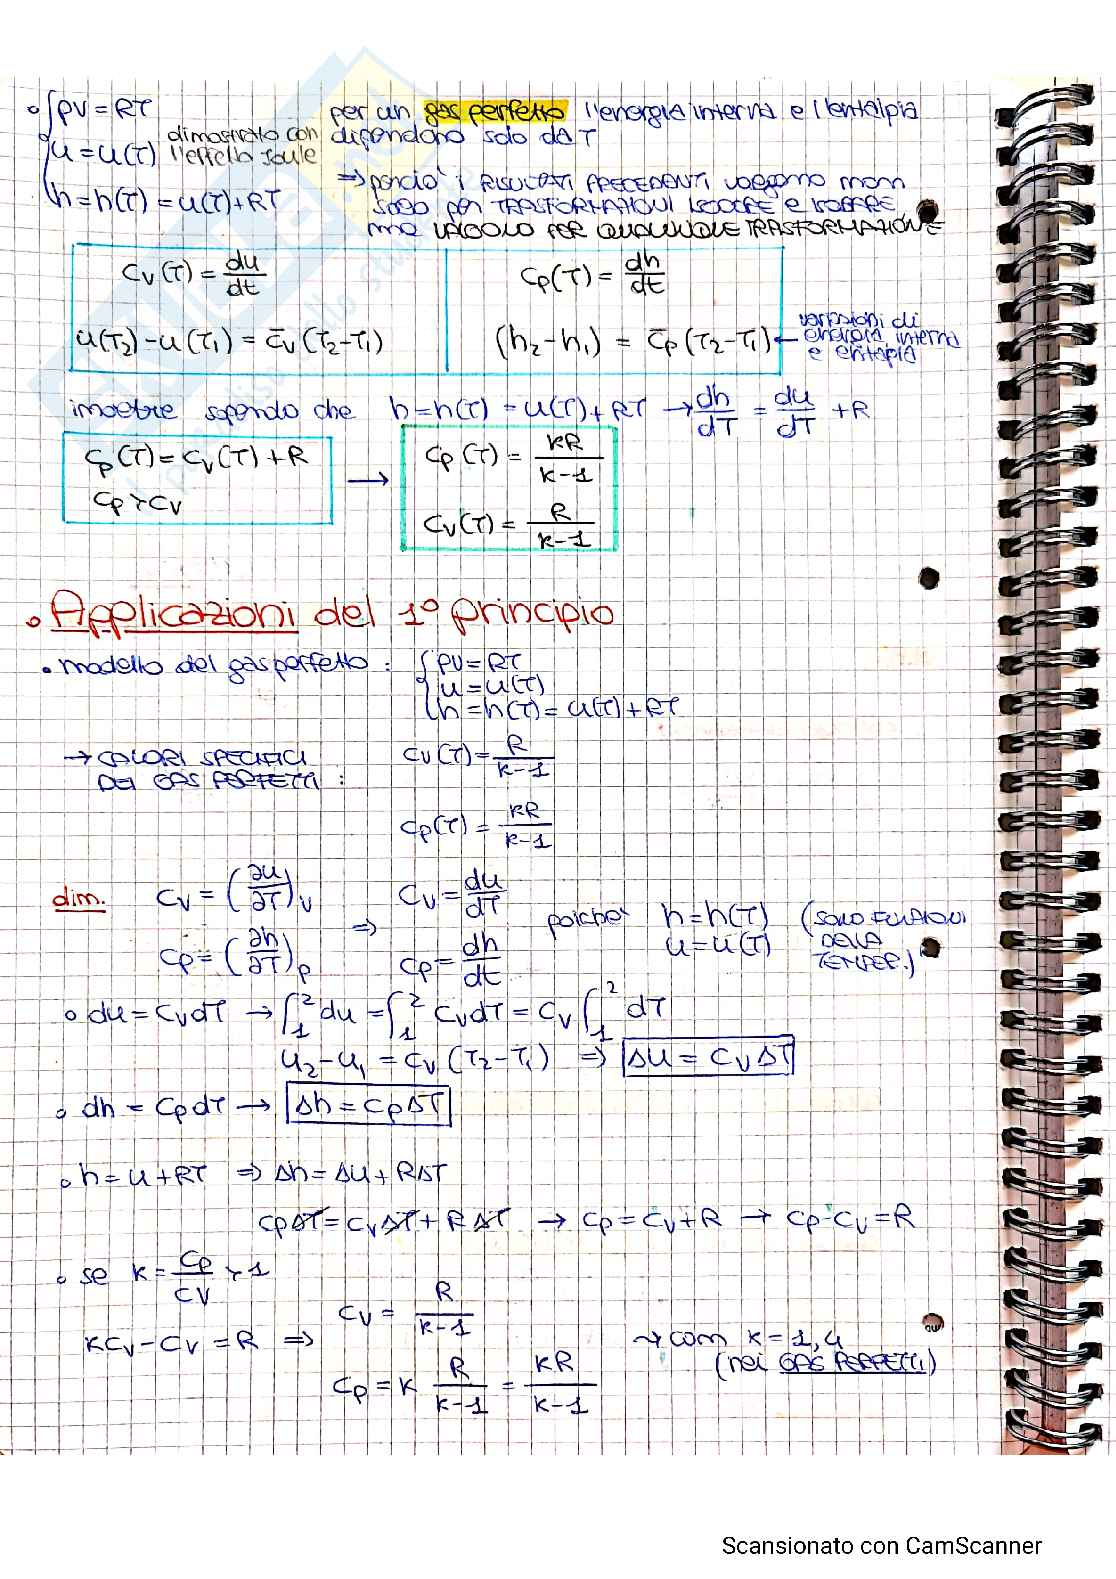 pv = RT
per un gas perfetto l'energia interna e l'entalpia
u = u(T) dimostrato con l'effetto Joule
dipendono solo da T
h = h(T) = u(T) + RT
=> perciò i RISULTATI PRECEDENTI valgono non
solo per TRASFORMAZIONI ISOCORE e ISOBARE
ma VALGONO PER QUALUNQUE TRASFORMAZIONE
Cv(T) = du/dt
Cp(T) = dh/dt
u(T2) - u(T1) = c̄v (T2 - T1)
(h2 - h1) = c̄p (T2 - T1) ← variazioni di
energia interna
e entalpia
inoltre sapendo che h = h(T) = u(T) + RT → dh/dT = du/dT + R
Cp(T) = Cv(T) + R
Cp > Cv
→ Cp(T) = kR/k-1
Cv(T) = R/k-1
• Applicazioni del 1° principio
• modello del gas perfetto: { pv = RT
u = u(T)
h = h(T) = u(T) + RT
→ CALORI SPECIFICI
DEI GAS PERFETTI:
Cv(T) = R/k-1
Cp(T) = kR/k-1
dim. Cv = (∂u/∂T)v => Cv = du/dT
Cp = (∂h/∂T)p Cp = dh/dt
poiché h = h(T) (SOLO FUNZIONI
u = u(T) DELLA
TEMPER.)
o du = CvdT → ∫₁² du = ∫₁² CvdT = Cv ∫₁² dT
u2 - u1 = Cv (T2 - T1) => Δu = CvΔT
o dh = CpdT → Δh = CpΔT
o h = u + RT => Δh = Δu + RΔT
CpΔT = CvΔT + RΔT → Cp = Cv + R → Cp - Cv = R
o se k = Cp/Cv > 1
kCv - Cv = R => Cv = R/k-1
Cp = k R/k-1 = kR/k-1
→ con k = 1,4
(nei GAS PERFETTI)
Scansionato con CamScanner